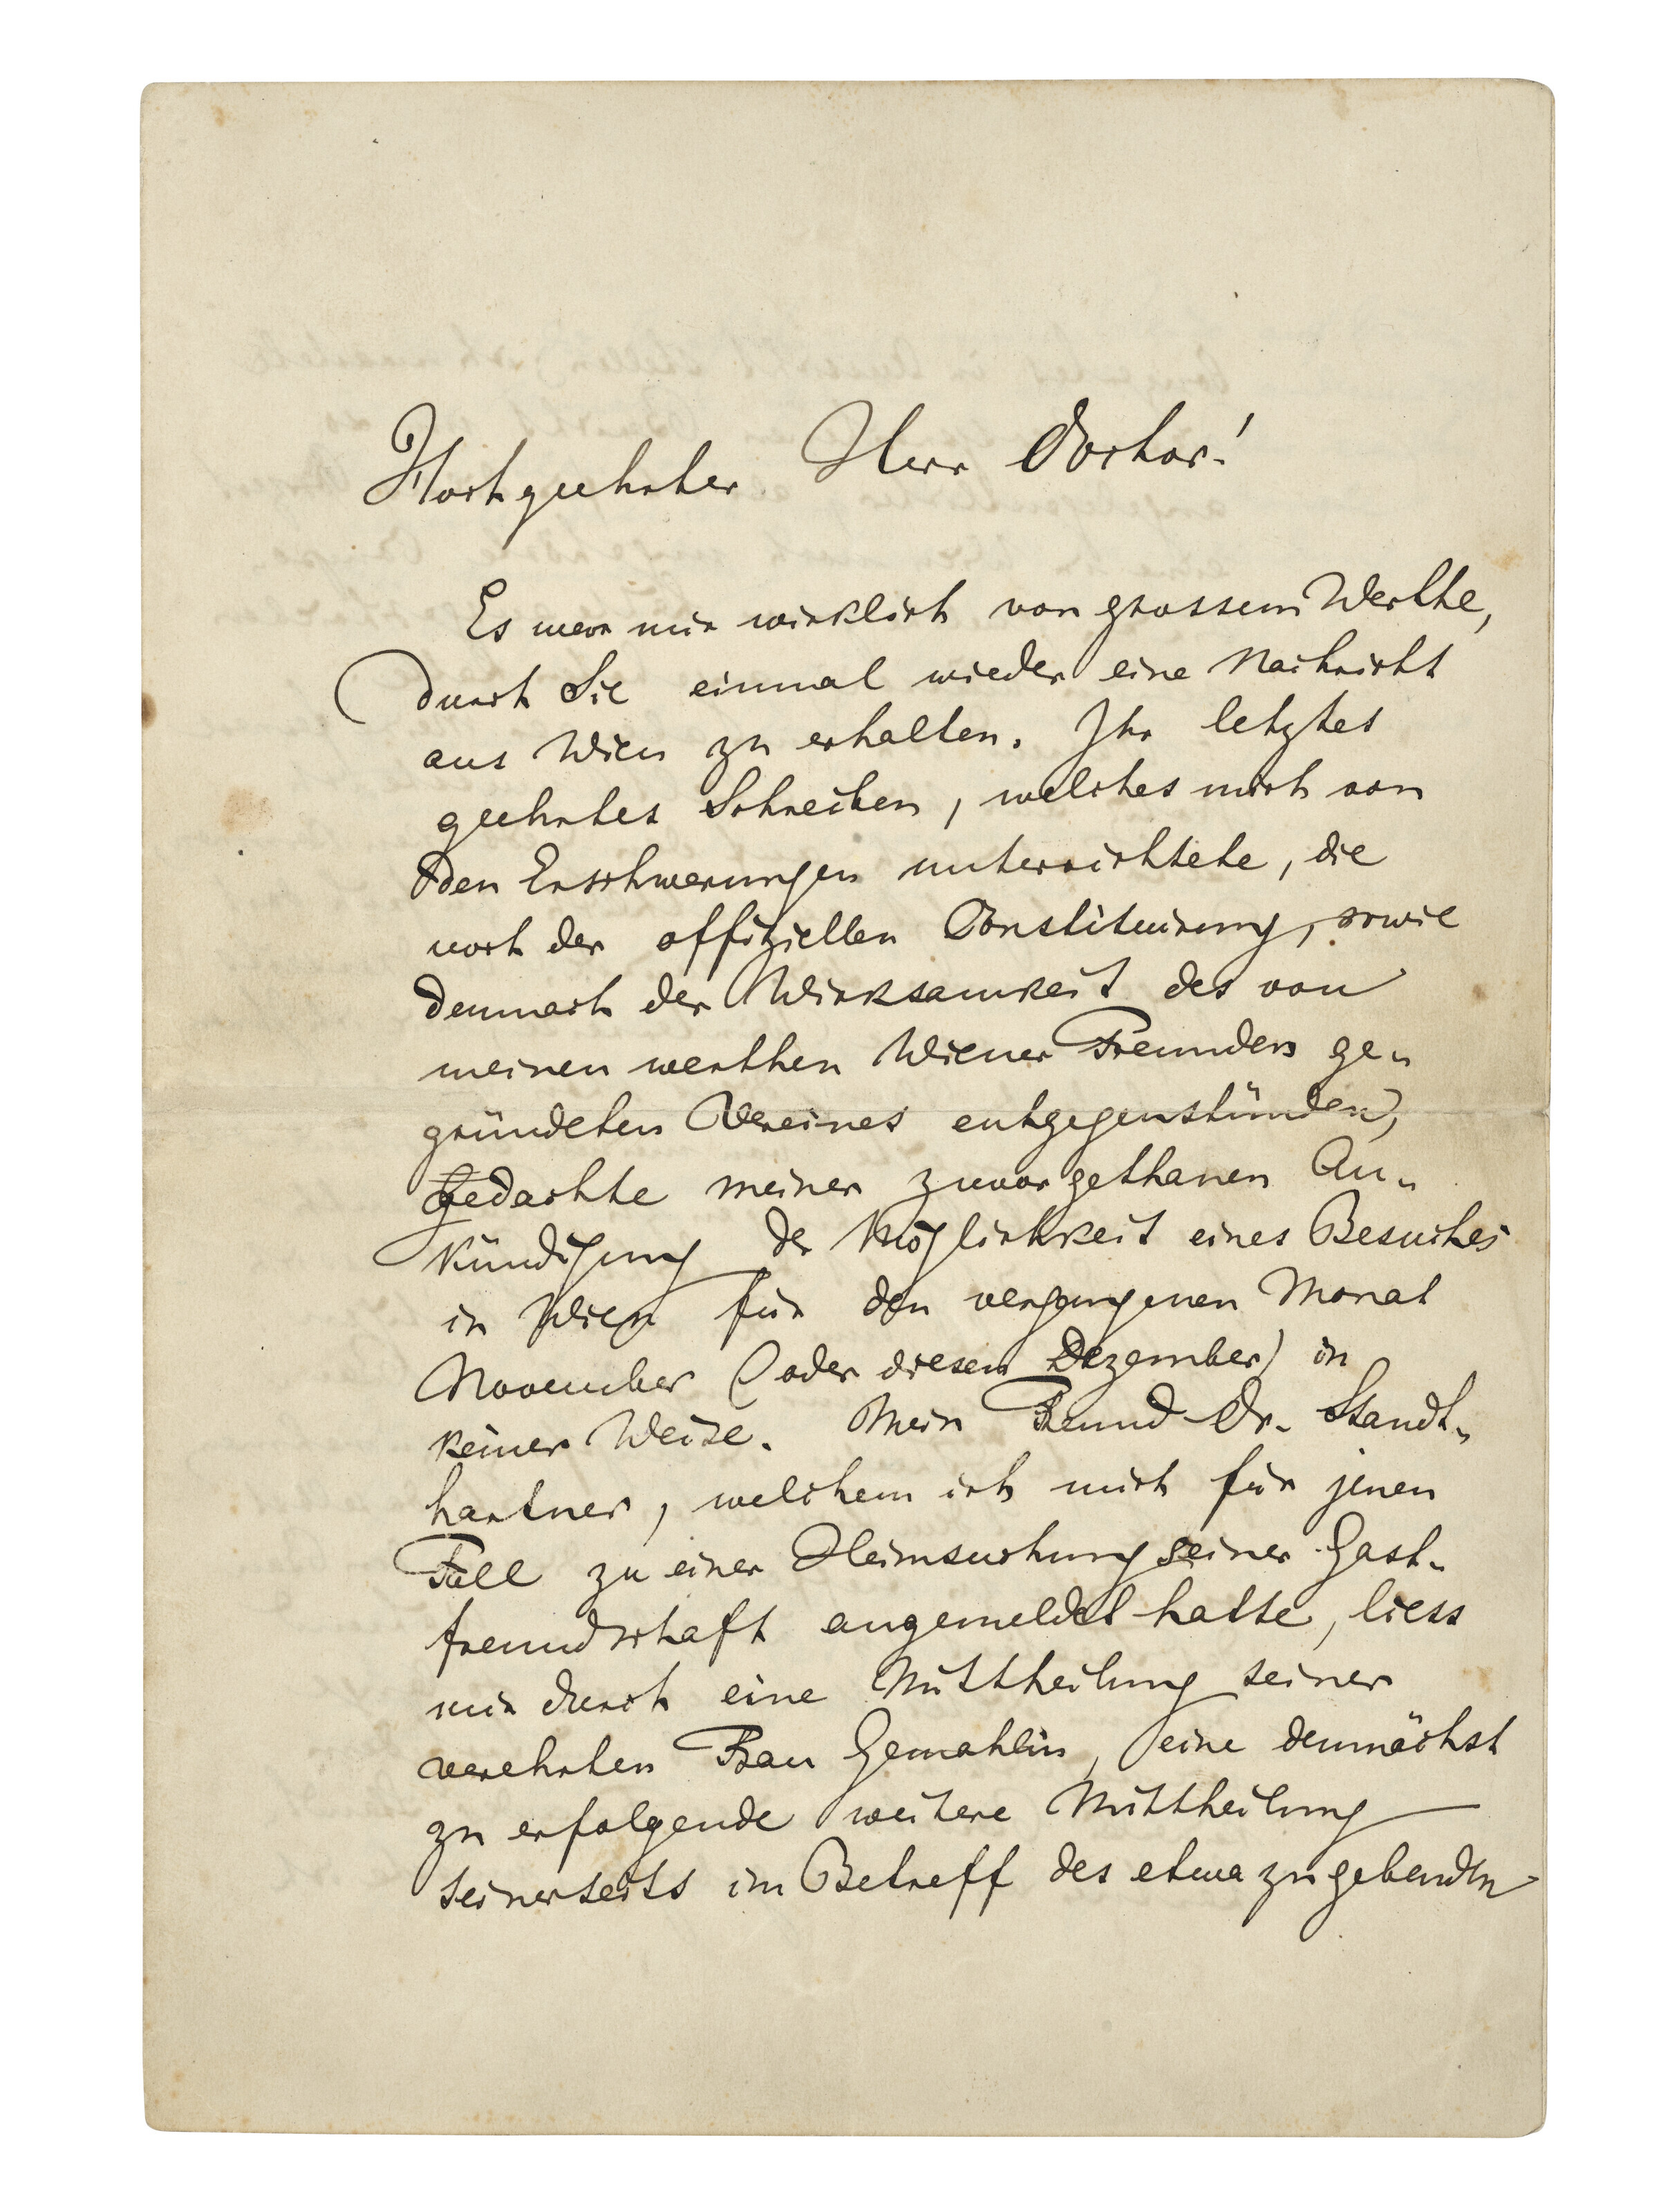 Hochgeehrter Herr Doctor!
Es war mir wirklich von grossem Werthe,
durch Sie einmal wieder eine Nachricht
aus Wien zu erhalten. Ihr letztes
geehrtes Schreiben, welches mich von
den Erschwerungen unterrichtete, die
noch der offiziellen Constituirung, sowie
demnach der Wirksamkeit des von
meinen werthen Wiener Freunden ge-
gründeten Vereines entgegenstünden,
gedachte meiner zuvor gethanen An-
kündigung der Möglichkeit eines Besuches
in Wien für den vergangenen Monat
November (oder diesen Dezember) in
keiner Weise. Mein Freund Dr. Standt-
hartner, welchem ich mich für jenen
Fall zu einer Heimsuchung seiner Gast-
freundschaft angemeldet hatte, liess
mir durch eine Mittheilung seiner
verehrten Frau Gemahlin, eine demnächst
zu erfolgende weitere Mittheilung
seinerseits im Betreff des etwa zu gebenden